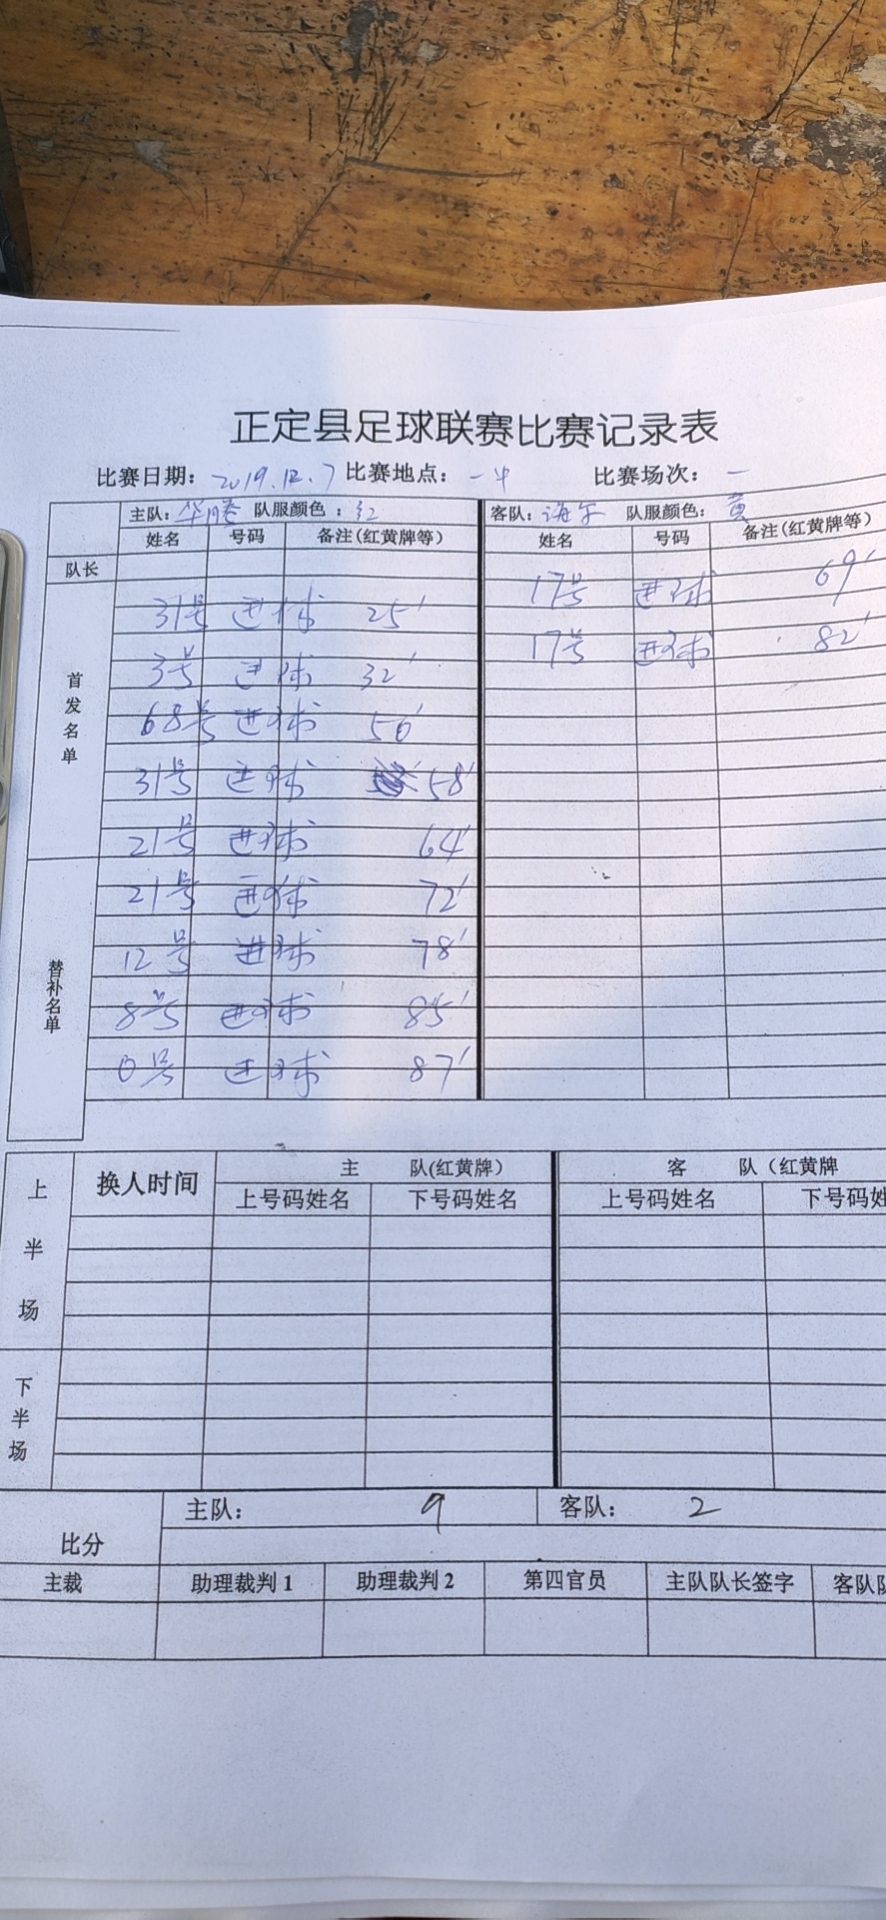 正定县足球联赛比赛记录表
比赛日期：2019.12.7 比赛地点：一中 比赛场次：一
主队：华腾 队服颜色：红 客队：海尔 队服颜色：黄
姓名 号码 备注(红黄牌等) 姓名 号码 备注(红黄牌等)
队长
首发名单
17号 进球 69′
31号 进球 25′
17号 进球 82′
3号 进球 32′
68号 进球 56′
31号 进球 58′
21号 进球 64′
替补名单
21号 进球 72′
12号 进球 78′
8号 进球 85′
0号 进球 87′
上半场 换人时间 主 队(红黄牌) 客 队（红黄牌
上号码姓名 下号码姓名 上号码姓名 下号码姓
下半场
比分 主队： 9 客队： 2
主裁 助理裁判1 助理裁判2 第四官员 主队队长签字 客队队